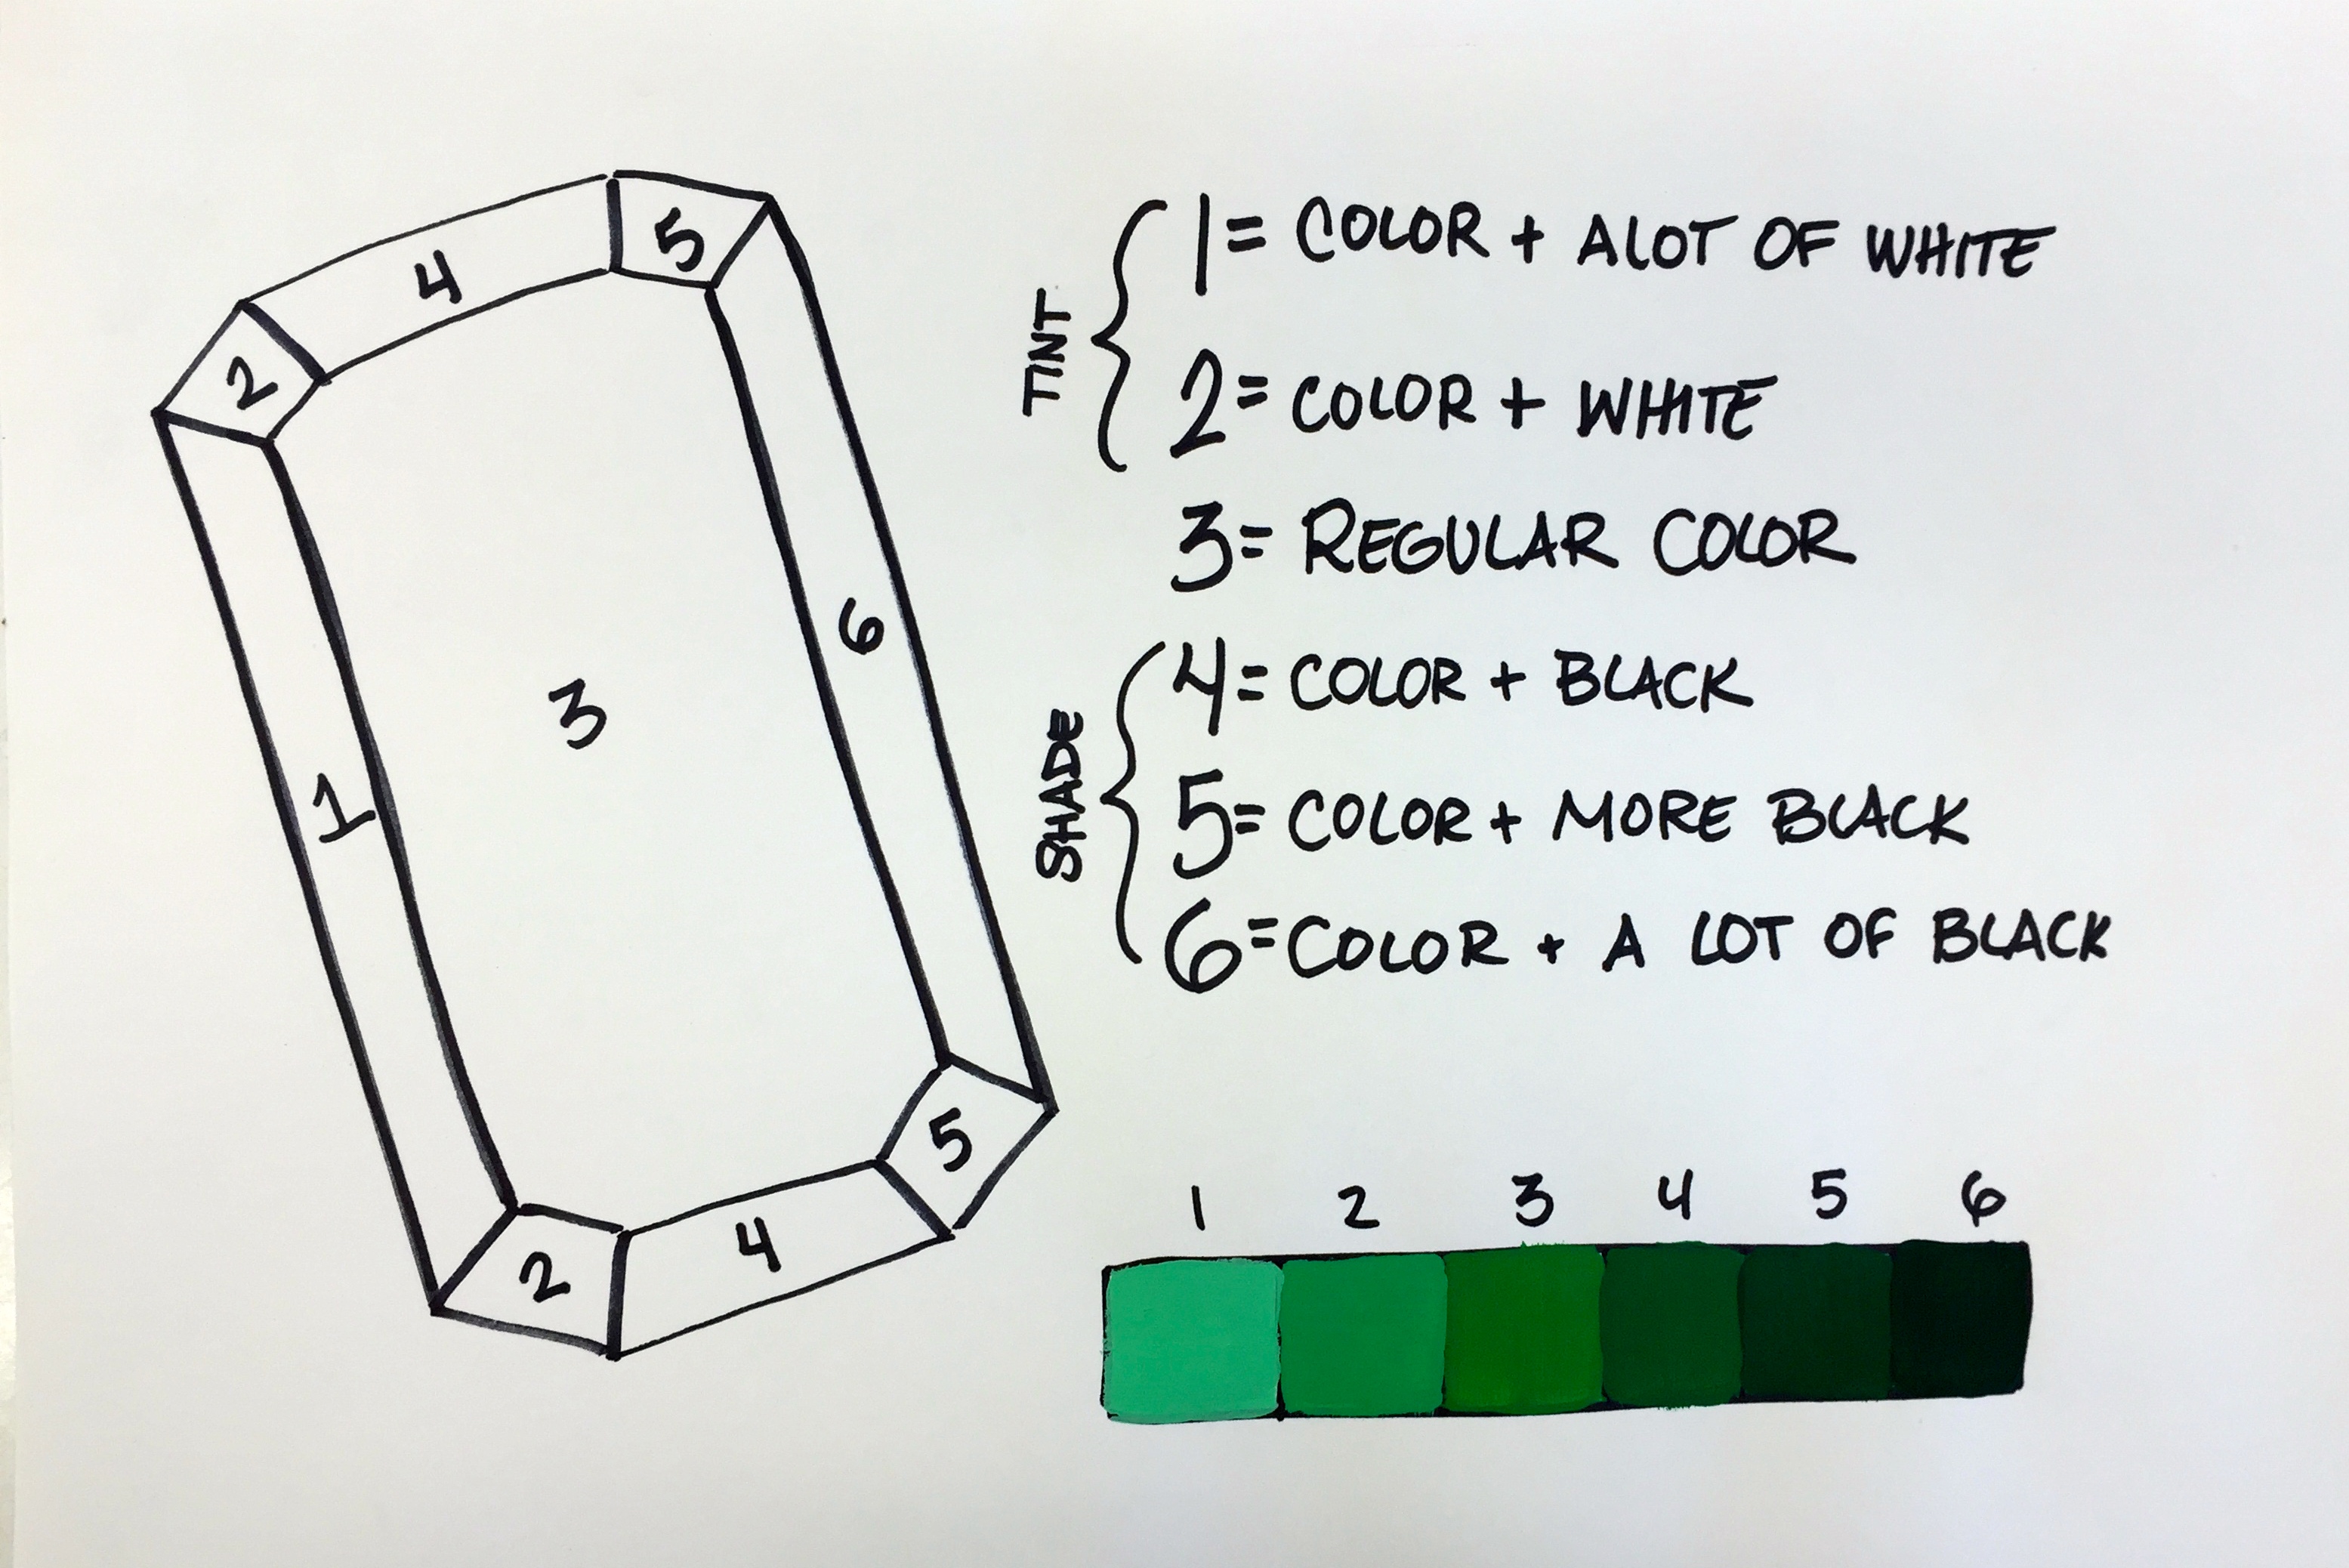 4
5
2
6
3
1
5
4
2
TINT
1= COLOR + ALOT OF WHITE
2= COLOR + WHITE
3= REGULAR COLOR
SHADE
4= COLOR + BLACK
5= COLOR + MORE BLACK
6= COLOR + A LOT OF BLACK
1 2 3 4 5 6